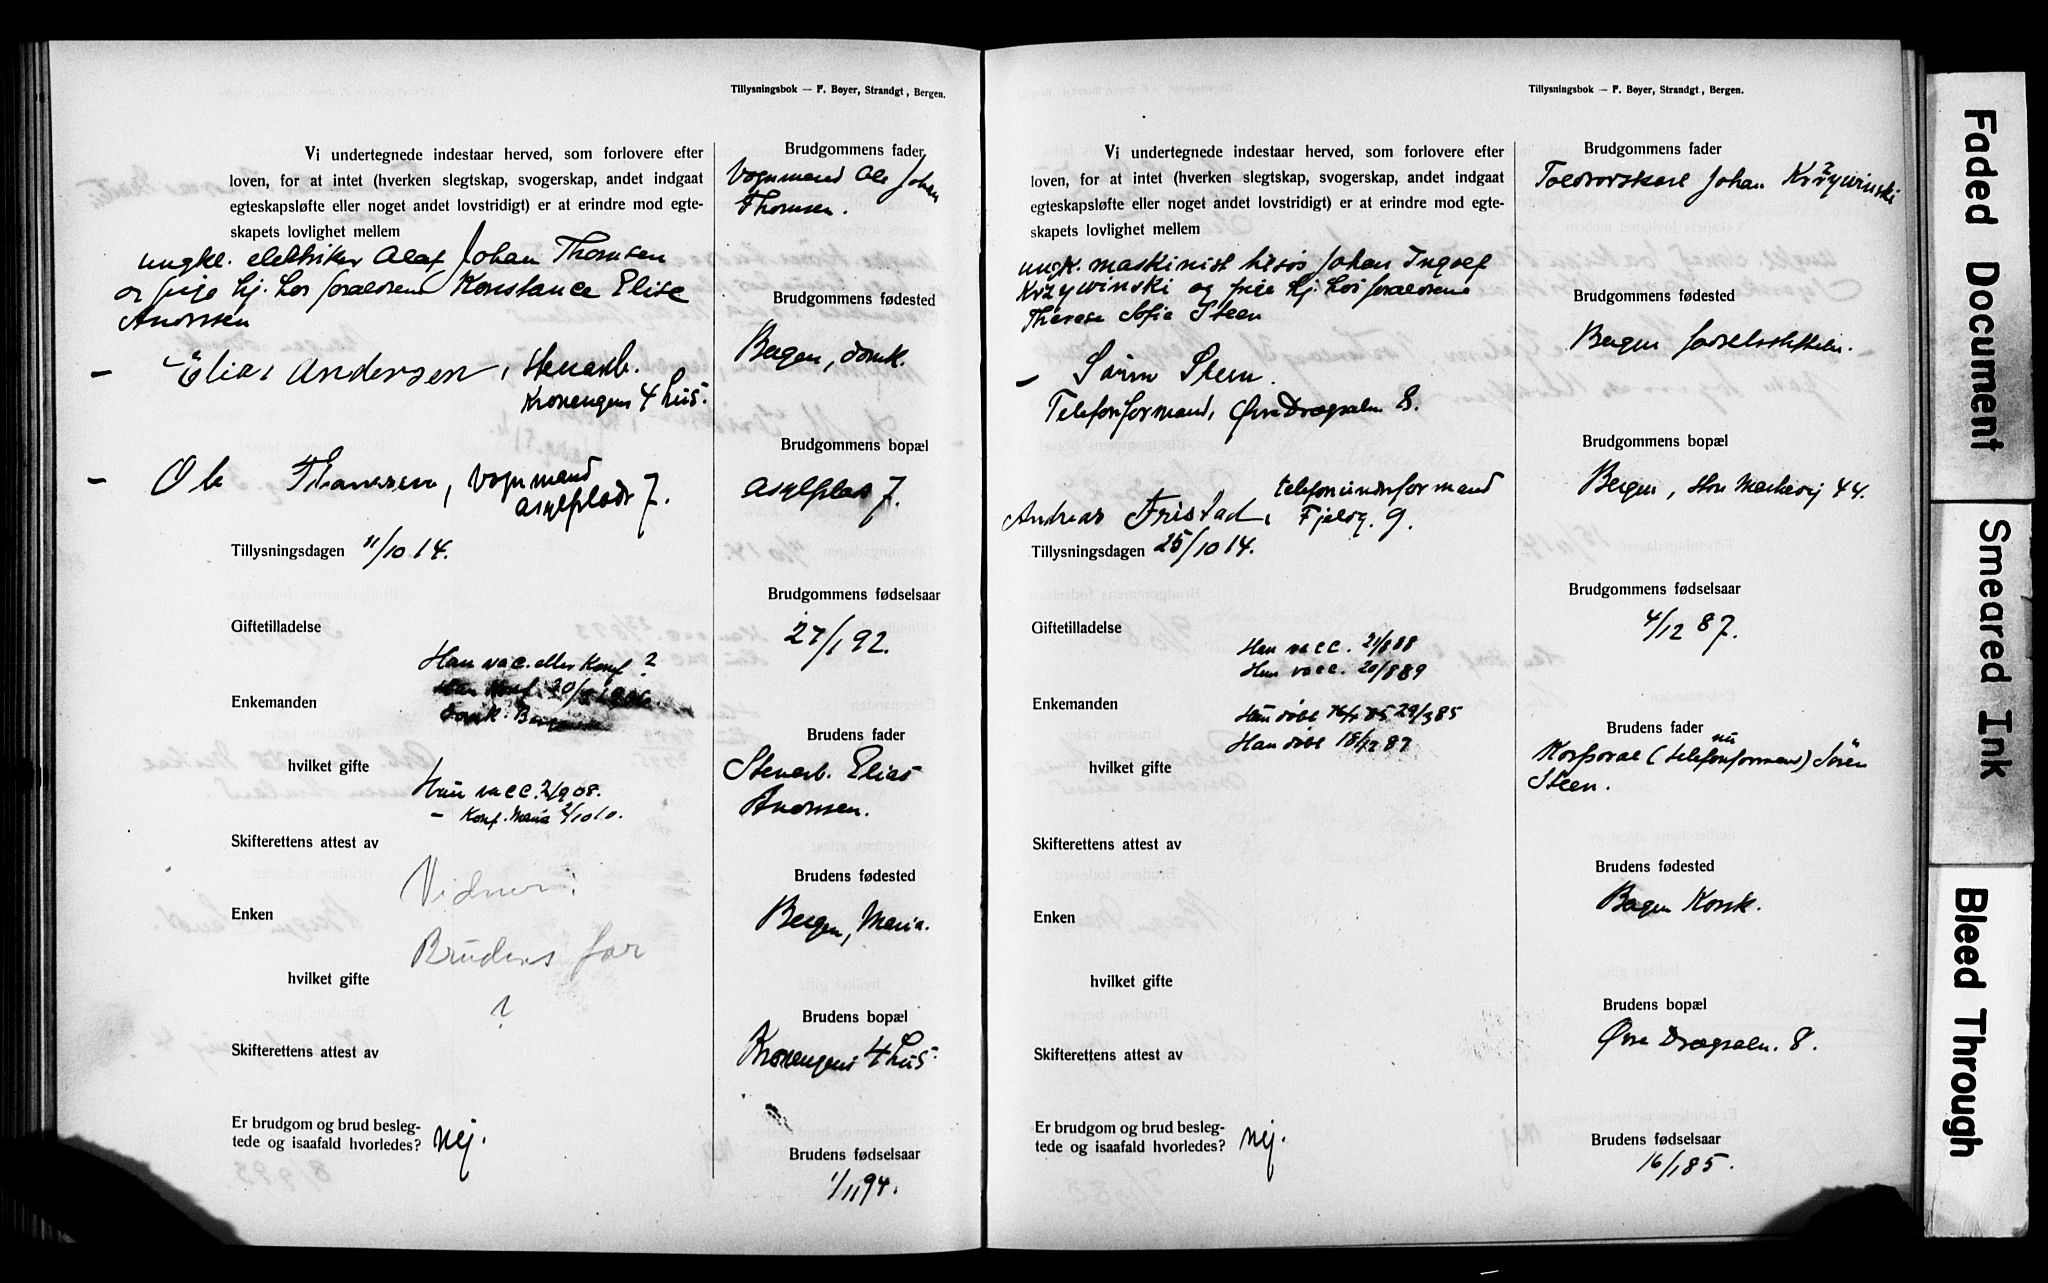 Tillysningsbok — F. Beyer, Strandgt, Bergen.
Vi undertegnede indestaar herved, som forlovere efter
loven, for at intet (hverken slegtskap, svogerskap, andet indgaat
egteskapsløfte eller noget andet lovstridigt) er at erindre mod egte-
skapets lovlighet mellem
ungkl. elektriker Olaf Johan Thomsen
og pige hj. hos forældrene Konstance Elise
Andersen
– Elias Andersen, Stenarb.
Kronengens 4 hus.
– Ole Thomsen, Vognmand
Asylplads 7.
Tillysningsdagen 11/10 14.
Giftetilladelse
Han vacc. eller Konf?
Han Konf. 20/
Enkemanden
Domk. Bergen
hvilket gifte
Hun vacc. 2/9 08.
– Konf. Maria 2/10 10.
Skifterettens attest av
Vidner:
Enken
Brudens far
hvilket gifte
?
Skifterettens attest av
Er brudgom og brud besleg-
tede og isaafald hvorledes? Nej.
Brudgommens fader
Vognmand Ole Johan
Thomsen.
Brudgommens fødested
Bergen, Domk.
Brudgommens bopæl
Asylplads 7.
Brudgommens fødselsaar
27/1 92.
Brudens fader
Stenarb. Elias
Andersen.
Brudens fødested
Bergen, Maria.
Brudens bopæl
Kronengens 4 hus.
Brudens fødselsaar
1/11 94.
Tillysningsbok — F. Beyer, Strandgt, Bergen.
Vi undertegnede indestaar herved, som forlovere efter
loven, for at intet (hverken slegtskap, svogerskap, andet indgaat
egteskapsløfte eller noget andet lovstridigt) er at erindre mod egte-
skapets lovlighet mellem
ungk. maskinist tilsøs Johan Ingolf
Kržywinski og pige hj. hos forældrene
Therese Sofie Steen
– Søren Steen.
Telefonformand, Øvre Drægsalm. 8.
telefonunderformand
Andreas Fristad, Fjeldg. 9.
Tillysningsdagen 25/10 14.
Giftetilladelse
Han vacc. 21/8 88
Hun vacc. 20/8 89
Enkemanden
Hun døbt 16/1 85 29/3 85
Han døbt 18/12 87
hvilket gifte
Skifterettens attest av
Enken
hvilket gifte
Skifterettens attest av
Er brudgom og brud besleg-
tede og isaafald hvorledes? Nej.
Brudgommens fader
Toldrorskarl Johan Kržywinski
Brudgommens fødested
Bergen fødselsstiftelse.
Brudgommens bopæl
Bergen, Store Markevej 44.
Brudgommens fødselsaar
4/12 87.
Brudens fader
nu
Korporal (telefonformand) Søren
Steen.
Brudens fødested
Bergen Korsk.
Brudens bopæl
Øvre Drægsalm. 8.
Brudens fødselsaar
16/1 85.
Faded Document
Smeared Ink
Bleed Through